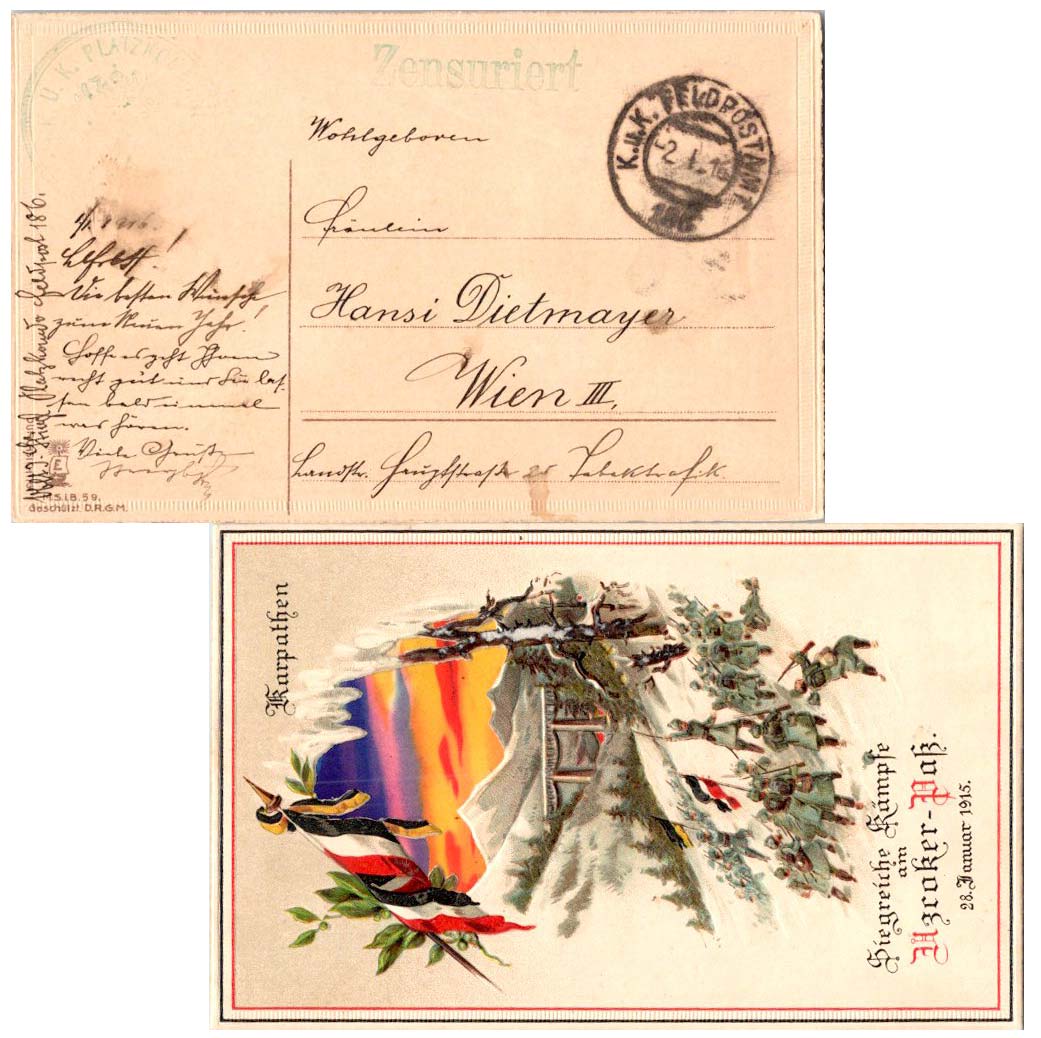 K. U. K. PLATZKO
Zensuriert
K.u.K. FELDPOSTAMT
2. I. 16
186
Wohlgeboren
Fräulein
Hansi Dietmayer
Wien III,
Landstr. Hauptstraße 25 Tabaktrafik.
Die besten Wünsche
zum Neuen Jahr.
Hoffe es geht Ihnen
recht gut und Sie las-
sen bald einmal
was hören.
Viele Grüße
Feldpost 186.
E
M.S.i.B. 59.
Geschützt. D.R.G.M.
Karpathen
Siegreiche Kämpfe
am
Uzcoker-Paß.
28. Januar 1915.